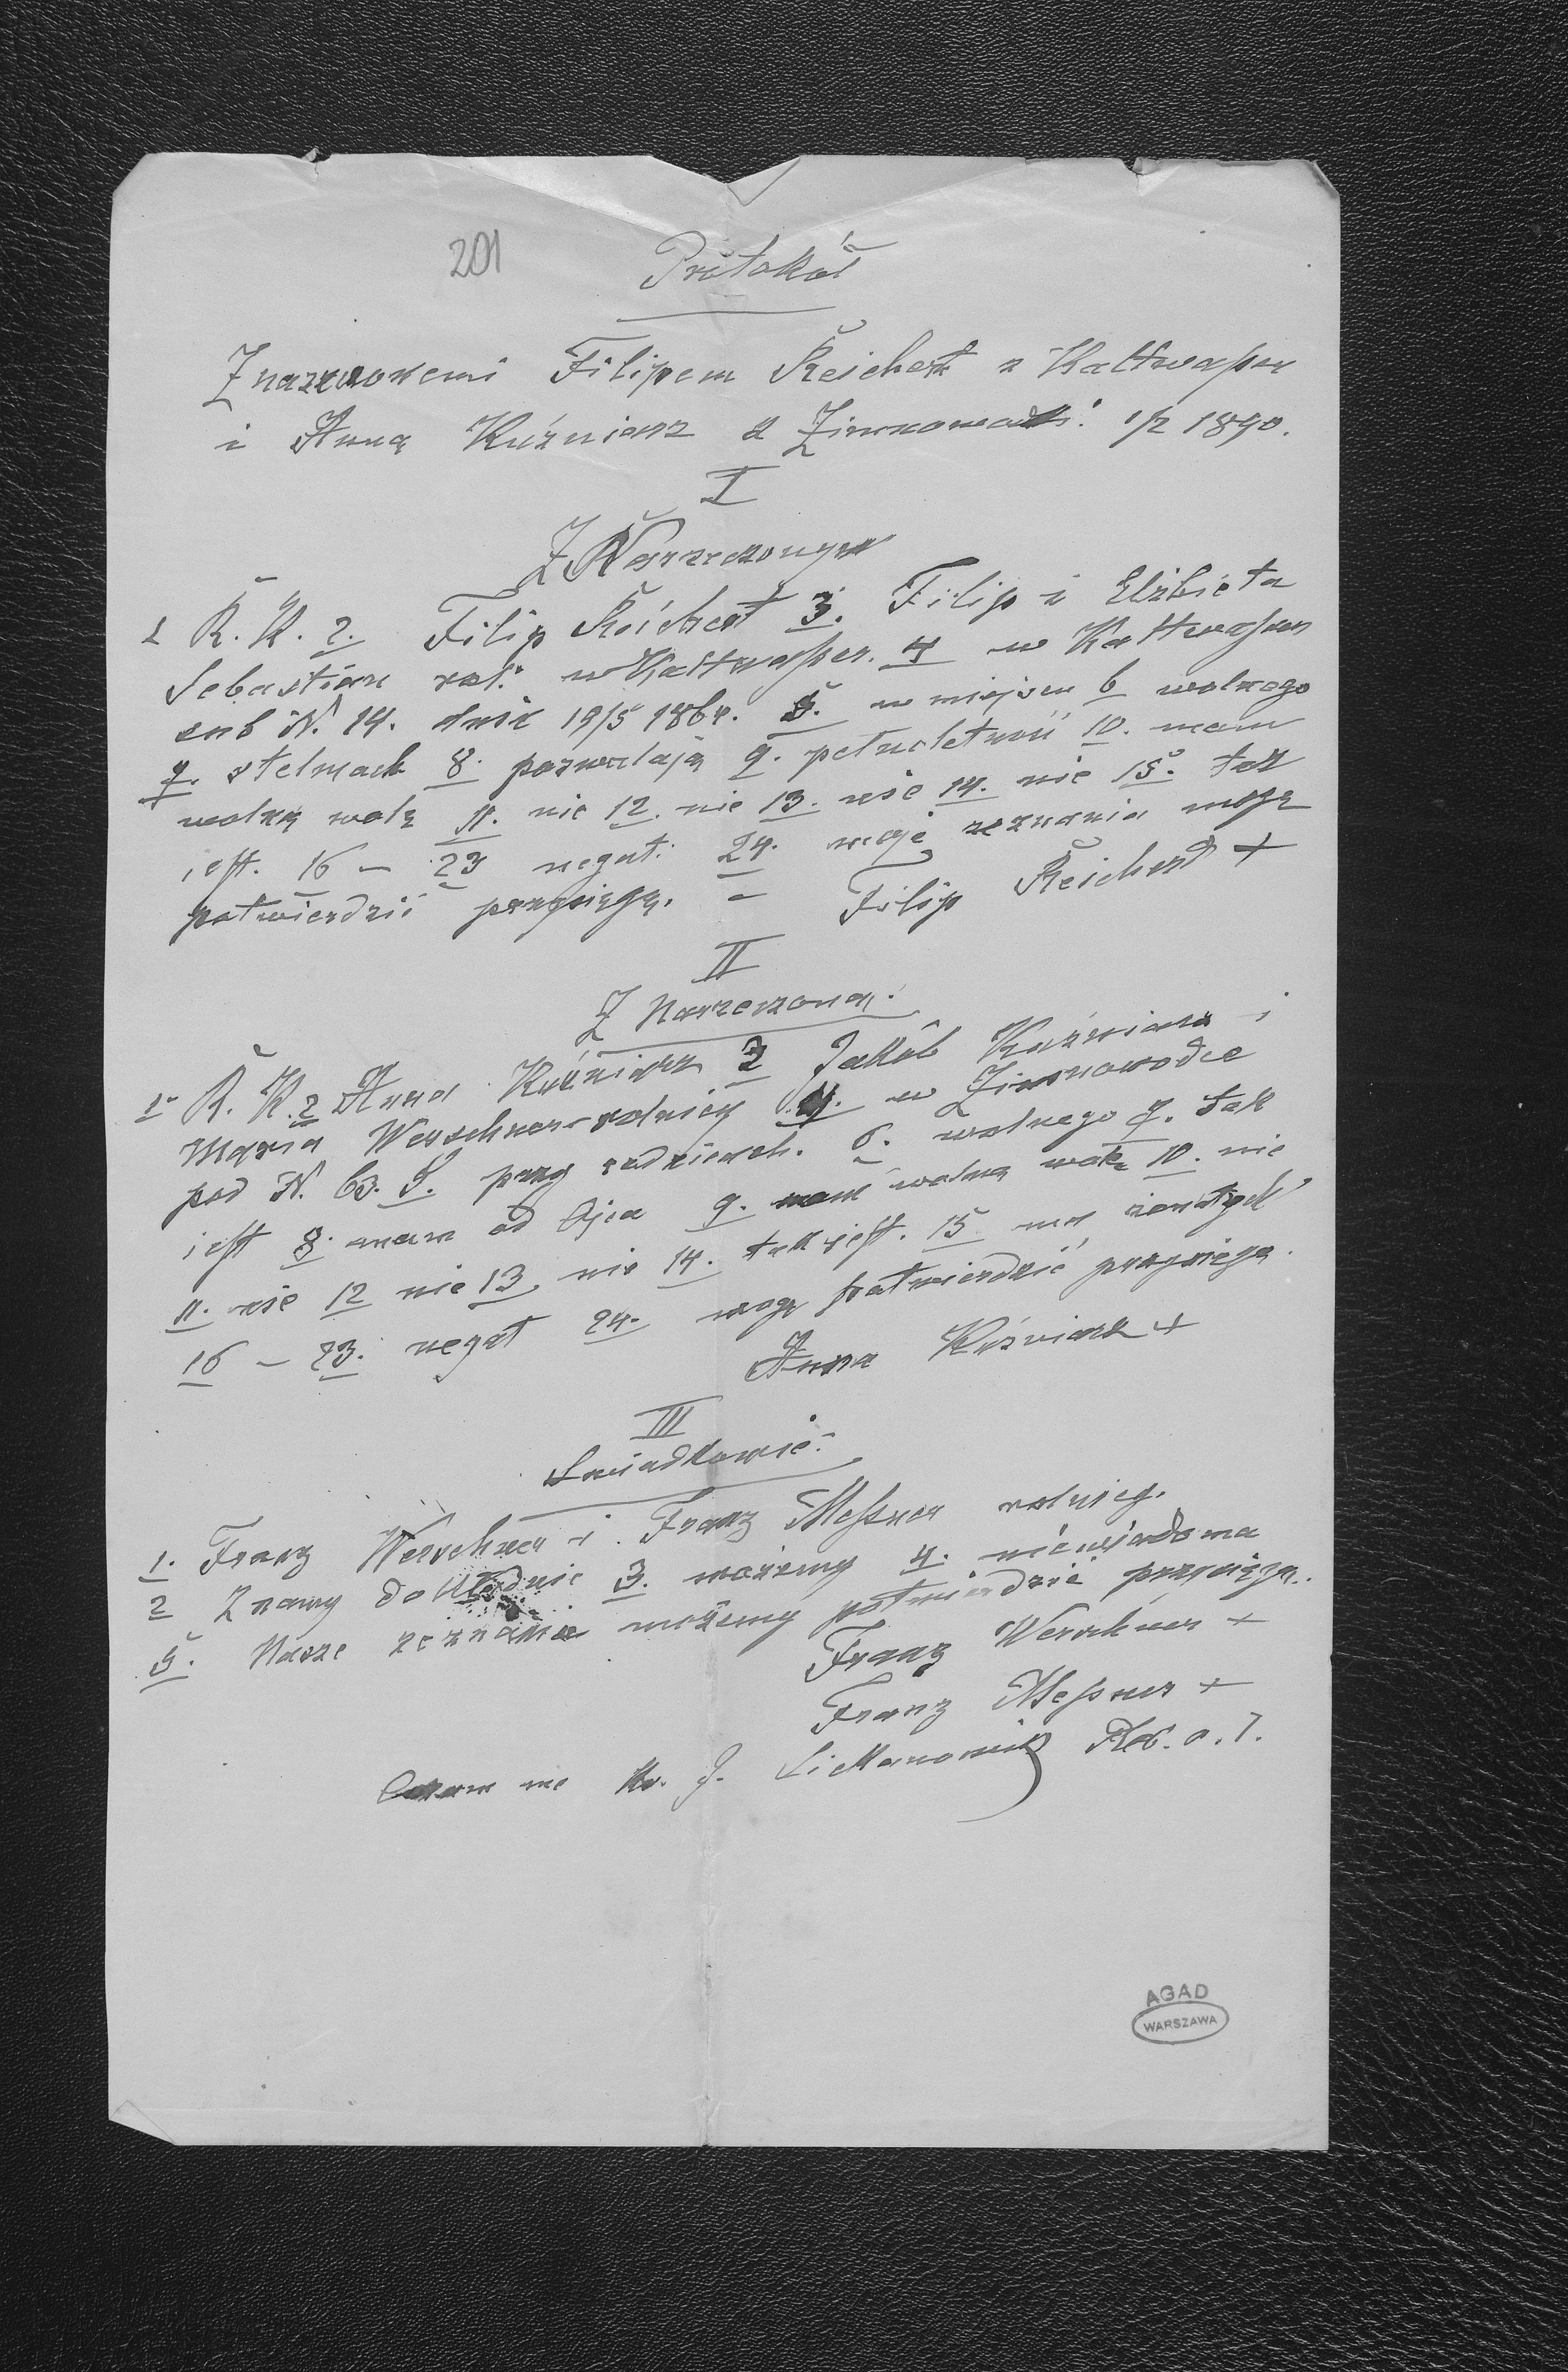 201
Protokół
Z narzeczonemi Filipem Reichert z Kaltwasser
i Anną Kuźniarz z Zimnowódki. 1/2 1890.
I
Z Narzeczonym
1 R. K. 2. Filip Reichert 3. Filip i Elżbieta
Sebastian rol. w Kaltwasser. 4 w Kaltwasser
sub N. 14. dnia 19/5 1864. 5. w miejscu 6 wolnego
7. stelmach 8. pozwalają 9. pełnoletność 10. mam
wolną wolę 11. nie 12. nie 13. nie 14. nie 15. tak
jest. 16 – 23 negat. 24. moje zeznania mogę
potwierdzić przysięgą. – Filip Reichert +
II
Z Narzeczoną.
1. R. K. 2 Anna Kuźniarz 3 Jakób Kuźniarz i
Marya Werschner rolnicy 4. w Zimnowodce
pod N. 63. 5. przy rodzicach. 6. wolnego 7. tak
jest 8. mam od Ojca 9. mam wolną wolę 10. nie
11. nie 12 nie 13 nie 14. tak jest. 15
16 – 23. negat 24. mogę potwierdzić przysięgą.
Anna Kuźniarz +
III
Swiadkowie.
1. Franz Werschner i Franz Messner rolnicy.
2 Znamy dokładnie 3. możemy 4. niewiadoma
5. Nasze zeznanie możemy potwierdzić przysięgą.
Franz Werschner +
Franz Messner +
Coram me J.
AGAD
WARSZAWA